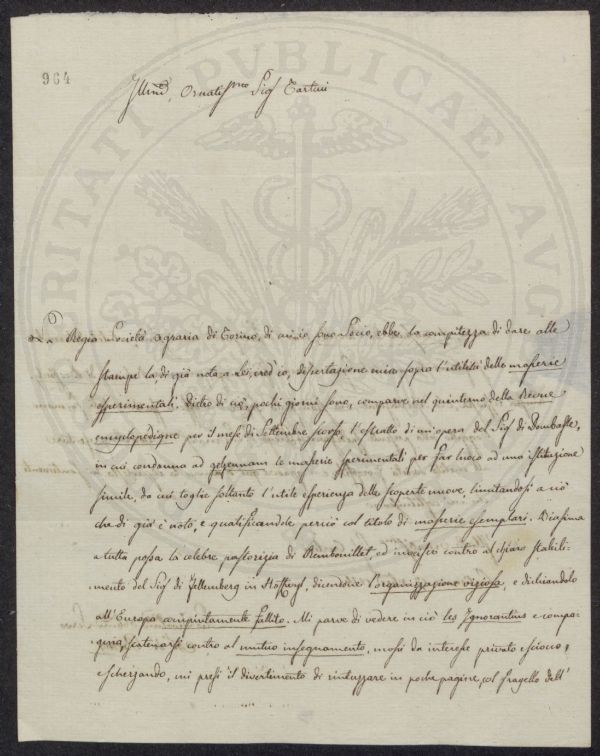 964
Illmo, Ornatissmo Sigr Tartini
PROSPERITATI PUBLICAE AUG
La Regia Società agraria di Torino, di cui io sono Socio, ebbe la compitezza di dare alle
stampe la di già nota a Lei, cred'io, dissertazione mia sopra l'utilità delle masserie
esperimentali. Dietro di ciò, pochi giorni sono, comparve nel quinterno della Revue
encyclopedique per il mese di Settembre scorso, l'estratto di un'opera del Sigr di Dombasle,
in cui condanna ad gehennam le masserie sperimentali per far luoco ad una istituzione
simile, da cui toglie soltanto l'utile esperienza delle scoperte nuove, limitandosi a ciò
che di già è noto, e qualificandole perciò col titolo di masserie esemplari. Biasima
a tutta possa la celebre pastorizia di Rambouillet ed inveisce contro al chiaro stabili-
mento del Sigr di Fellemberg in Hoffwyl, dicendone l'organizzazione viziosa, e dichiarandolo
all'Europa compiutamente fallito. Mi parve di vedere in ciò les Ignorantins e compa-
gnia, scatenarsi contro al mutuo insegnamento, mossi da interesse privato e sciocco,
e scherzando, mi presi il divertimento di rintuzzare in poche pagine, col flagello dell'